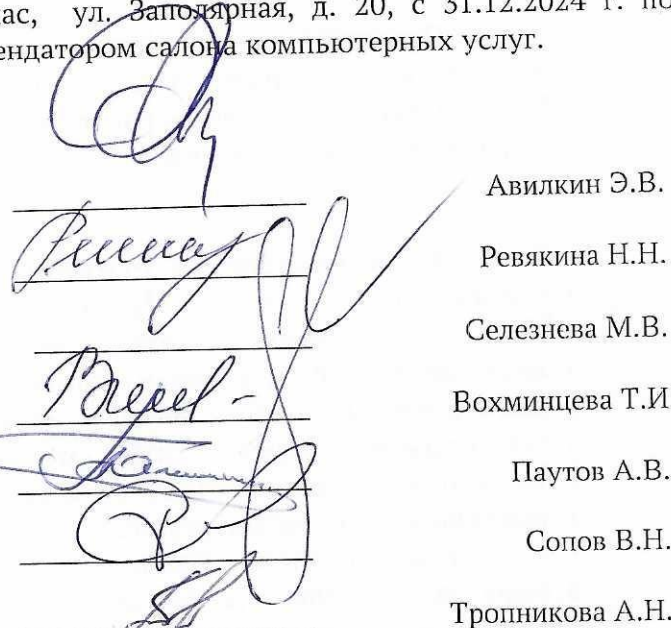 ул. Заполярная, д. 20, с 31.12.2024 г.
салона компьютерных услуг.
Авилкин Э.В.
Ревякина Н.Н.
Селезнева М.В.
Вохминцева Т.И
Паутов А.В.
Сопов В.Н.
Тропникова А.Н.